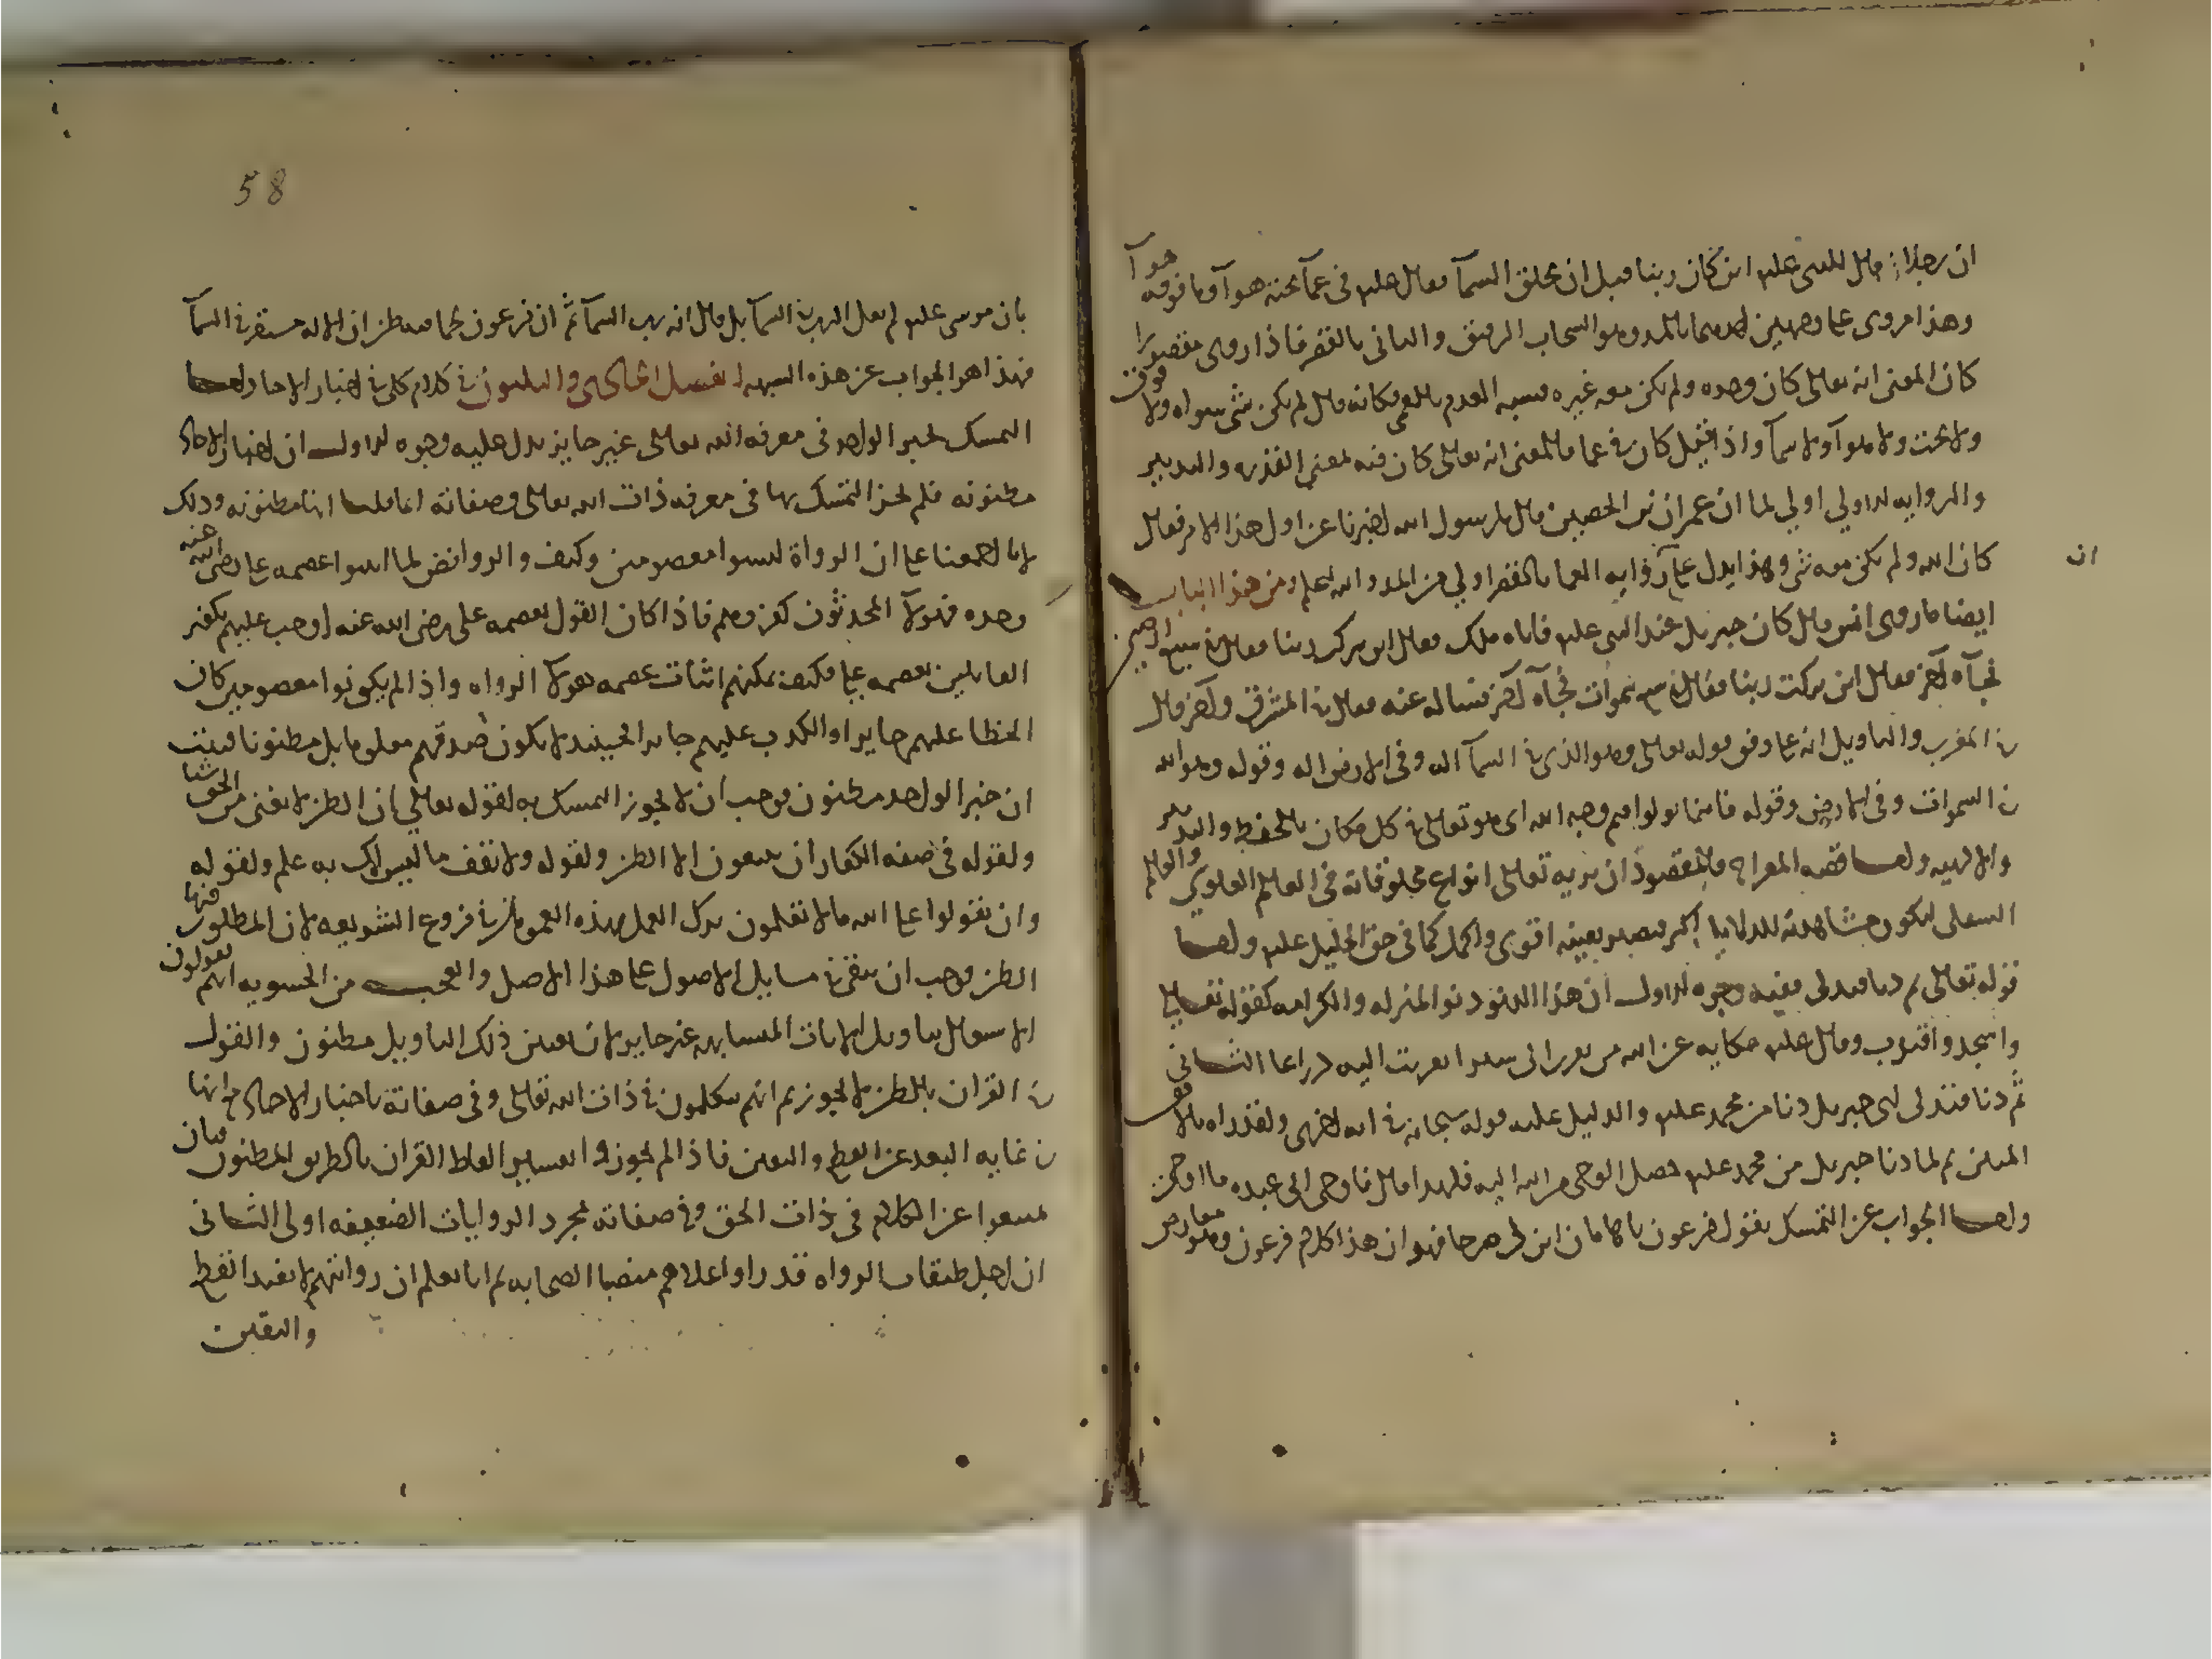 ان رجلا قال للنبي عليه اين كان ربنا قبل ان يخلق السمآ فقال عليه في عمآ تحته هوآ وما فوقه هوآ
وهذا مروى على وجهين احدهما بالمد وهو السحاب الرقيق والثاني بالقصر فاذا روى مقصورا
كان المعنى انه تعالى كان وحده ولم يكن معه غيره فشبه العدم بالعمى فكانه قال لم يكن شي سواه ولا فوق
ولا تحت ولا هوآ ولا سمآ واذا قيل كان في عما فالمعنى انه تعالى كان فيه بمعنى القدره والتدبير
والروايه الاولي اولي لما ان عمران بن الحصين قال يا رسول الله اخبرنا عن اول هذا الامر فقال
كان الله ولم يكن معه شي وهذا يدل على ان روايه العما بالقصر اولي من المد والله اعلم ومن هذا الباب
ايضا ما روى انس قال كان جبريل عند النبي عليه فاتاه ملك فقال اين تركت ربنا فقال في سبع ارضين
فجآه آخر فقال اين تركت ربنا فقال في سبع سموات فجآه آخر فساله عنه فقال في المشرق وآخر قال
في المغرب والتاويل انه على وفق قوله تعالى وهو الذي في السمآ اله وفي الارض اله وقوله وهو الله
في السموات وفي الارض وقوله فاينما تولوا فثم وجه الله اى هو تعالى في كل مكان بالحفظ والتدبير
والالهيه واما قصه المعراج فالمقصود ان يريه تعالى انواع مخلوقاته في العالم العلوي والعالم
السفلى ليكون مشاهدته للدلايل اكثر فيصير يقينه اقوى واكمل كما في حق الخليل عليه واما
قوله تعالى ثم دنا فتدلى ففيه وجوه الاول ان هذا الدنو دنو المنزله والكرامه كقوله تعالى
واسجد واقترب وقال عليه حكايه عن الله من تقرب الى شبرا تقربت اليه ذراعا الثاني
ثم دنا فتدلى اى جبريل دنا من محمد عليه والدليل عليه قوله سبحانه في ايه اخرى ولقد راه بالافق
المبين ثم لما دنا جبريل من محمد عليه حصل الوحي من الله اليه فلهذا قال فاوحى الى عبده ما اوحى
واما الجواب عن التمسك بقول فرعون يا هامان ابن لى صرحا فهو ان هذا كلام فرعون وهو معارض
58
بان موسى عليه لم يقل الرب في السمآ بل قال انه رب السمآ ثم ان فرعون لحماقته ظن ان الاله مستقر في السمآ
فهذا هو الجواب عن هذه الشبهه الفصل الحادي والثلثون في كلام كلى في اخبار الاحاد اما
التمسك بخبر الواحد في معرفه الله تعالى غير جايز يدل عليه وجوه الاول ان اخبار الاحاد
مظنونه فلم يجز التمسك بها في معرفه ذات الله تعالى وصفاته انما قلنا انها مظنونه وذلك
لانا اجمعنا على ان الرواة ليسوا معصومين وكيف والروافض لما اثبتوا عصمه على رضى الله عنه
وحده فهولآ المحدثون كفروهم فاذا كان القول بعصمه على رضى الله عنه اوجب عليهم تكفير
القايلين بعصمه على فكيف يمكنهم اثبات عصمه هولآ الرواه واذا لم يكونوا معصومين كان
الخطا عليهم جايزا والكذب عليهم جايزا فحينيذ لا يكون صدقهم معلوما بل مظنونا فثبت
ان خبر الواحد مظنون فوجب ان لا يجوز التمسك به لقوله تعالى ان الظن لا يغنى من الحق شيا
ولقوله في صفه الكفار ان يتبعون الا الظن ولقوله ولا تقف ما ليس لك به علم ولقوله
وان تقولوا على الله ما لا تعلمون ترك العمل بهذه العمومات في فروع الشريعه لان المطلوب فيها
الظن فوجب ان يبقى في مسايل الاصول على هذا الاصل والعجب من الحشويه انهم يقولون
الاشتغال بتاويل الايات المتشابهه غير جايز لان تعيين ذلك التاويل مظنون والقول
في القران بالظن لا يجوز ثم انهم يتكلمون في ذات الله تعالى وفي صفاته باخبار الاحاد مع انها
في غايه البعد عن القطع واليقين فاذا لم يجوزوا تفسير الفاظ القران بالطريق المظنون فبان
يمتنعوا عن الكلام في ذات الحق وفي صفاته بمجرد الروايات الضعيفه اولى الثاني
ان اجل طبقات الرواه قدرا واعلاهم منصبا الصحابه ثم انا نعلم ان رواتهم لا تفيد القطع
واليقين